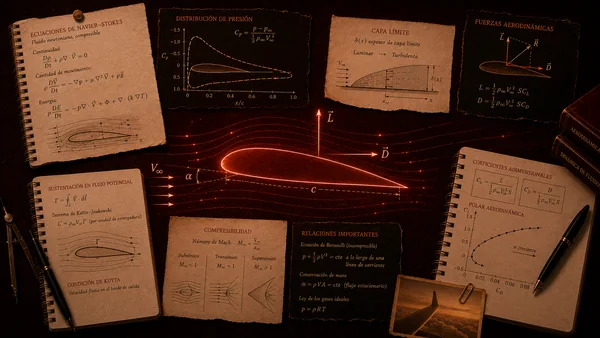 ECUACIONES DE NAVIER-STOKES
Fluido newtoniano, compresible
Continuidad:
Dρ/Dt + ρ∇·V⃗ = 0
Cantidad de movimiento:
Energía:
DISTRIBUCIÓN DE PRESIÓN
x/c
0 0.2 0.4 0.6 0.8 1.0
CAPA LÍMITE
δ(x) espesor de capa límite
Laminar → Turbulenta
FUERZAS AERODINÁMICAS
L⃗
R⃗
D⃗
L = ½ ρ∞ V∞² S C_L
D = ½ ρ∞ V∞² S C_D
L⃗
D⃗
V∞
α
c
SUSTENTACIÓN EN FLUJO POTENCIAL
Teorema de Kutta-Joukowski
L' = ρ∞ V∞ Γ (por unidad de envergadura)
Γ
CONDICIÓN DE KUTTA
COMPRESIBILIDAD
Número de Mach
Subsónico
Transónico
Supersónico
RELACIONES IMPORTANTES
Ecuación de Bernoulli (incompresible)
p + ½ ρV² = cte a lo largo de una
línea de corriente
Conservación de masa
ṁ = ρVA = cte (flujo estacionario)
Ley de los gases ideales
p = ρRT
COEFICIENTES ADIMENSIONALES
POLAR AERODINÁMICA
C_L
C_D